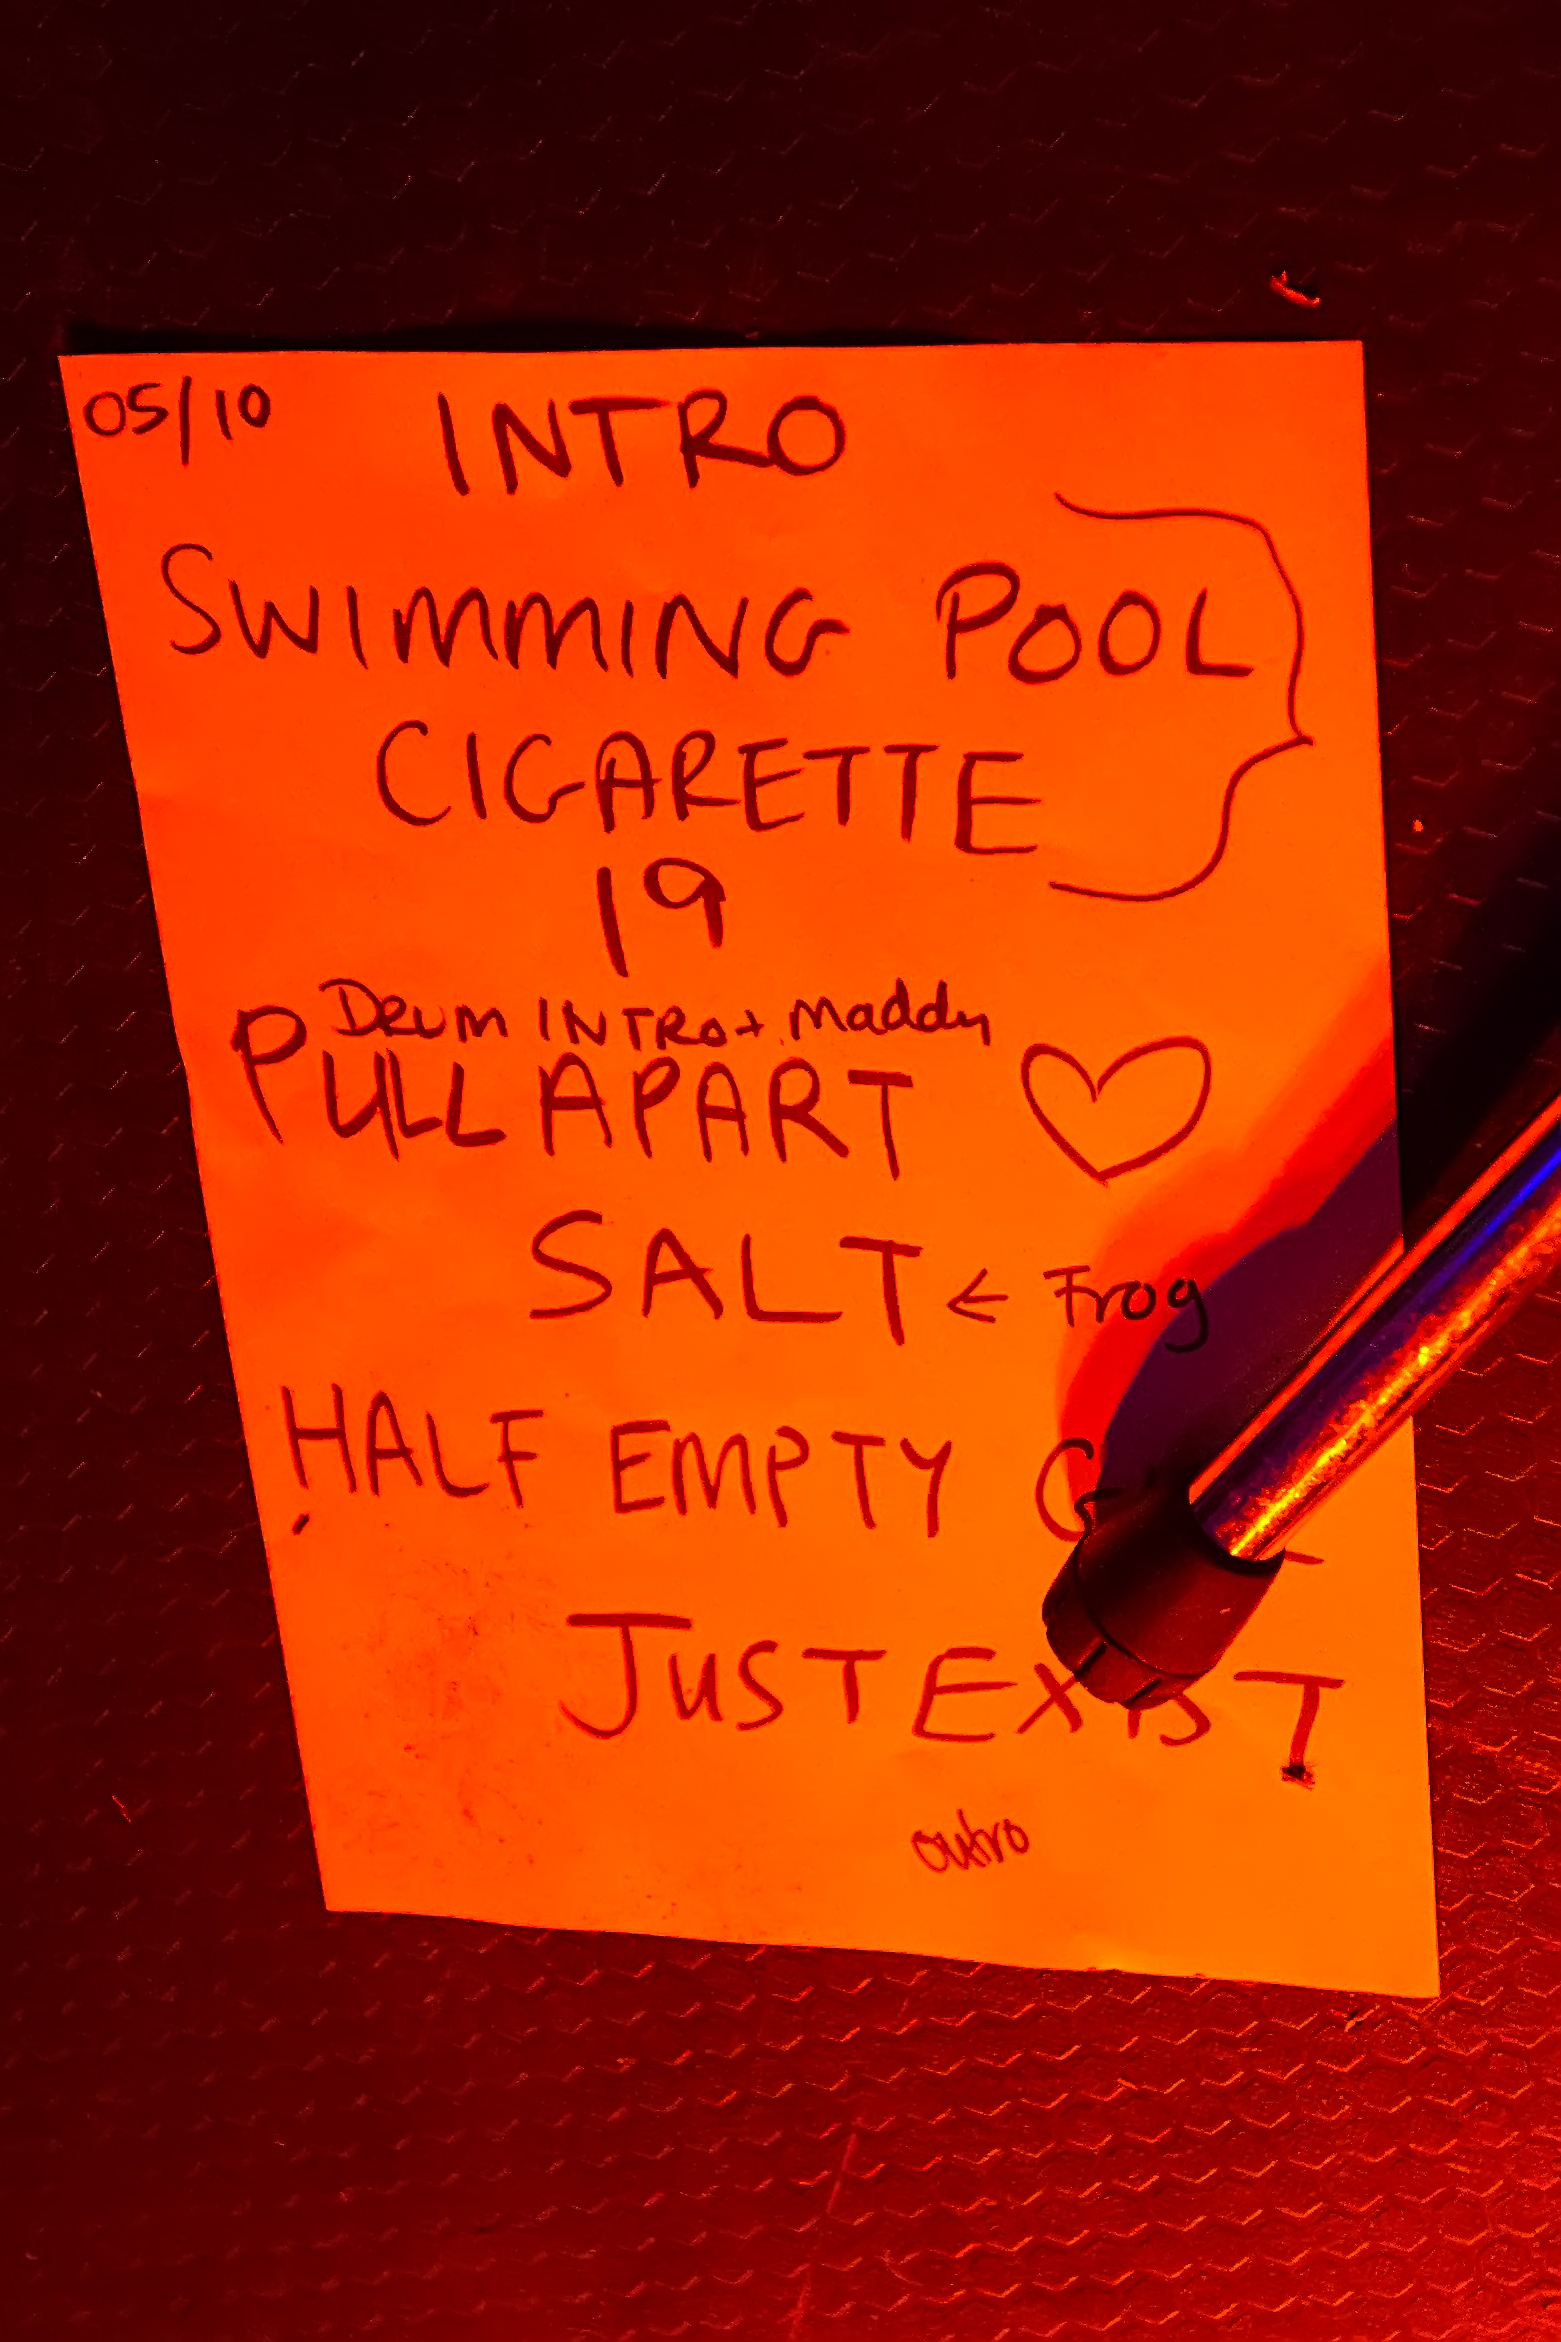 05/10 INTRO
SWIMMING POOL
CIGARETTE
19
DRUM INTRO + Maddy
PULL APART
SALT ← Frog
HALF EMPTY
JUST EXIST
outro